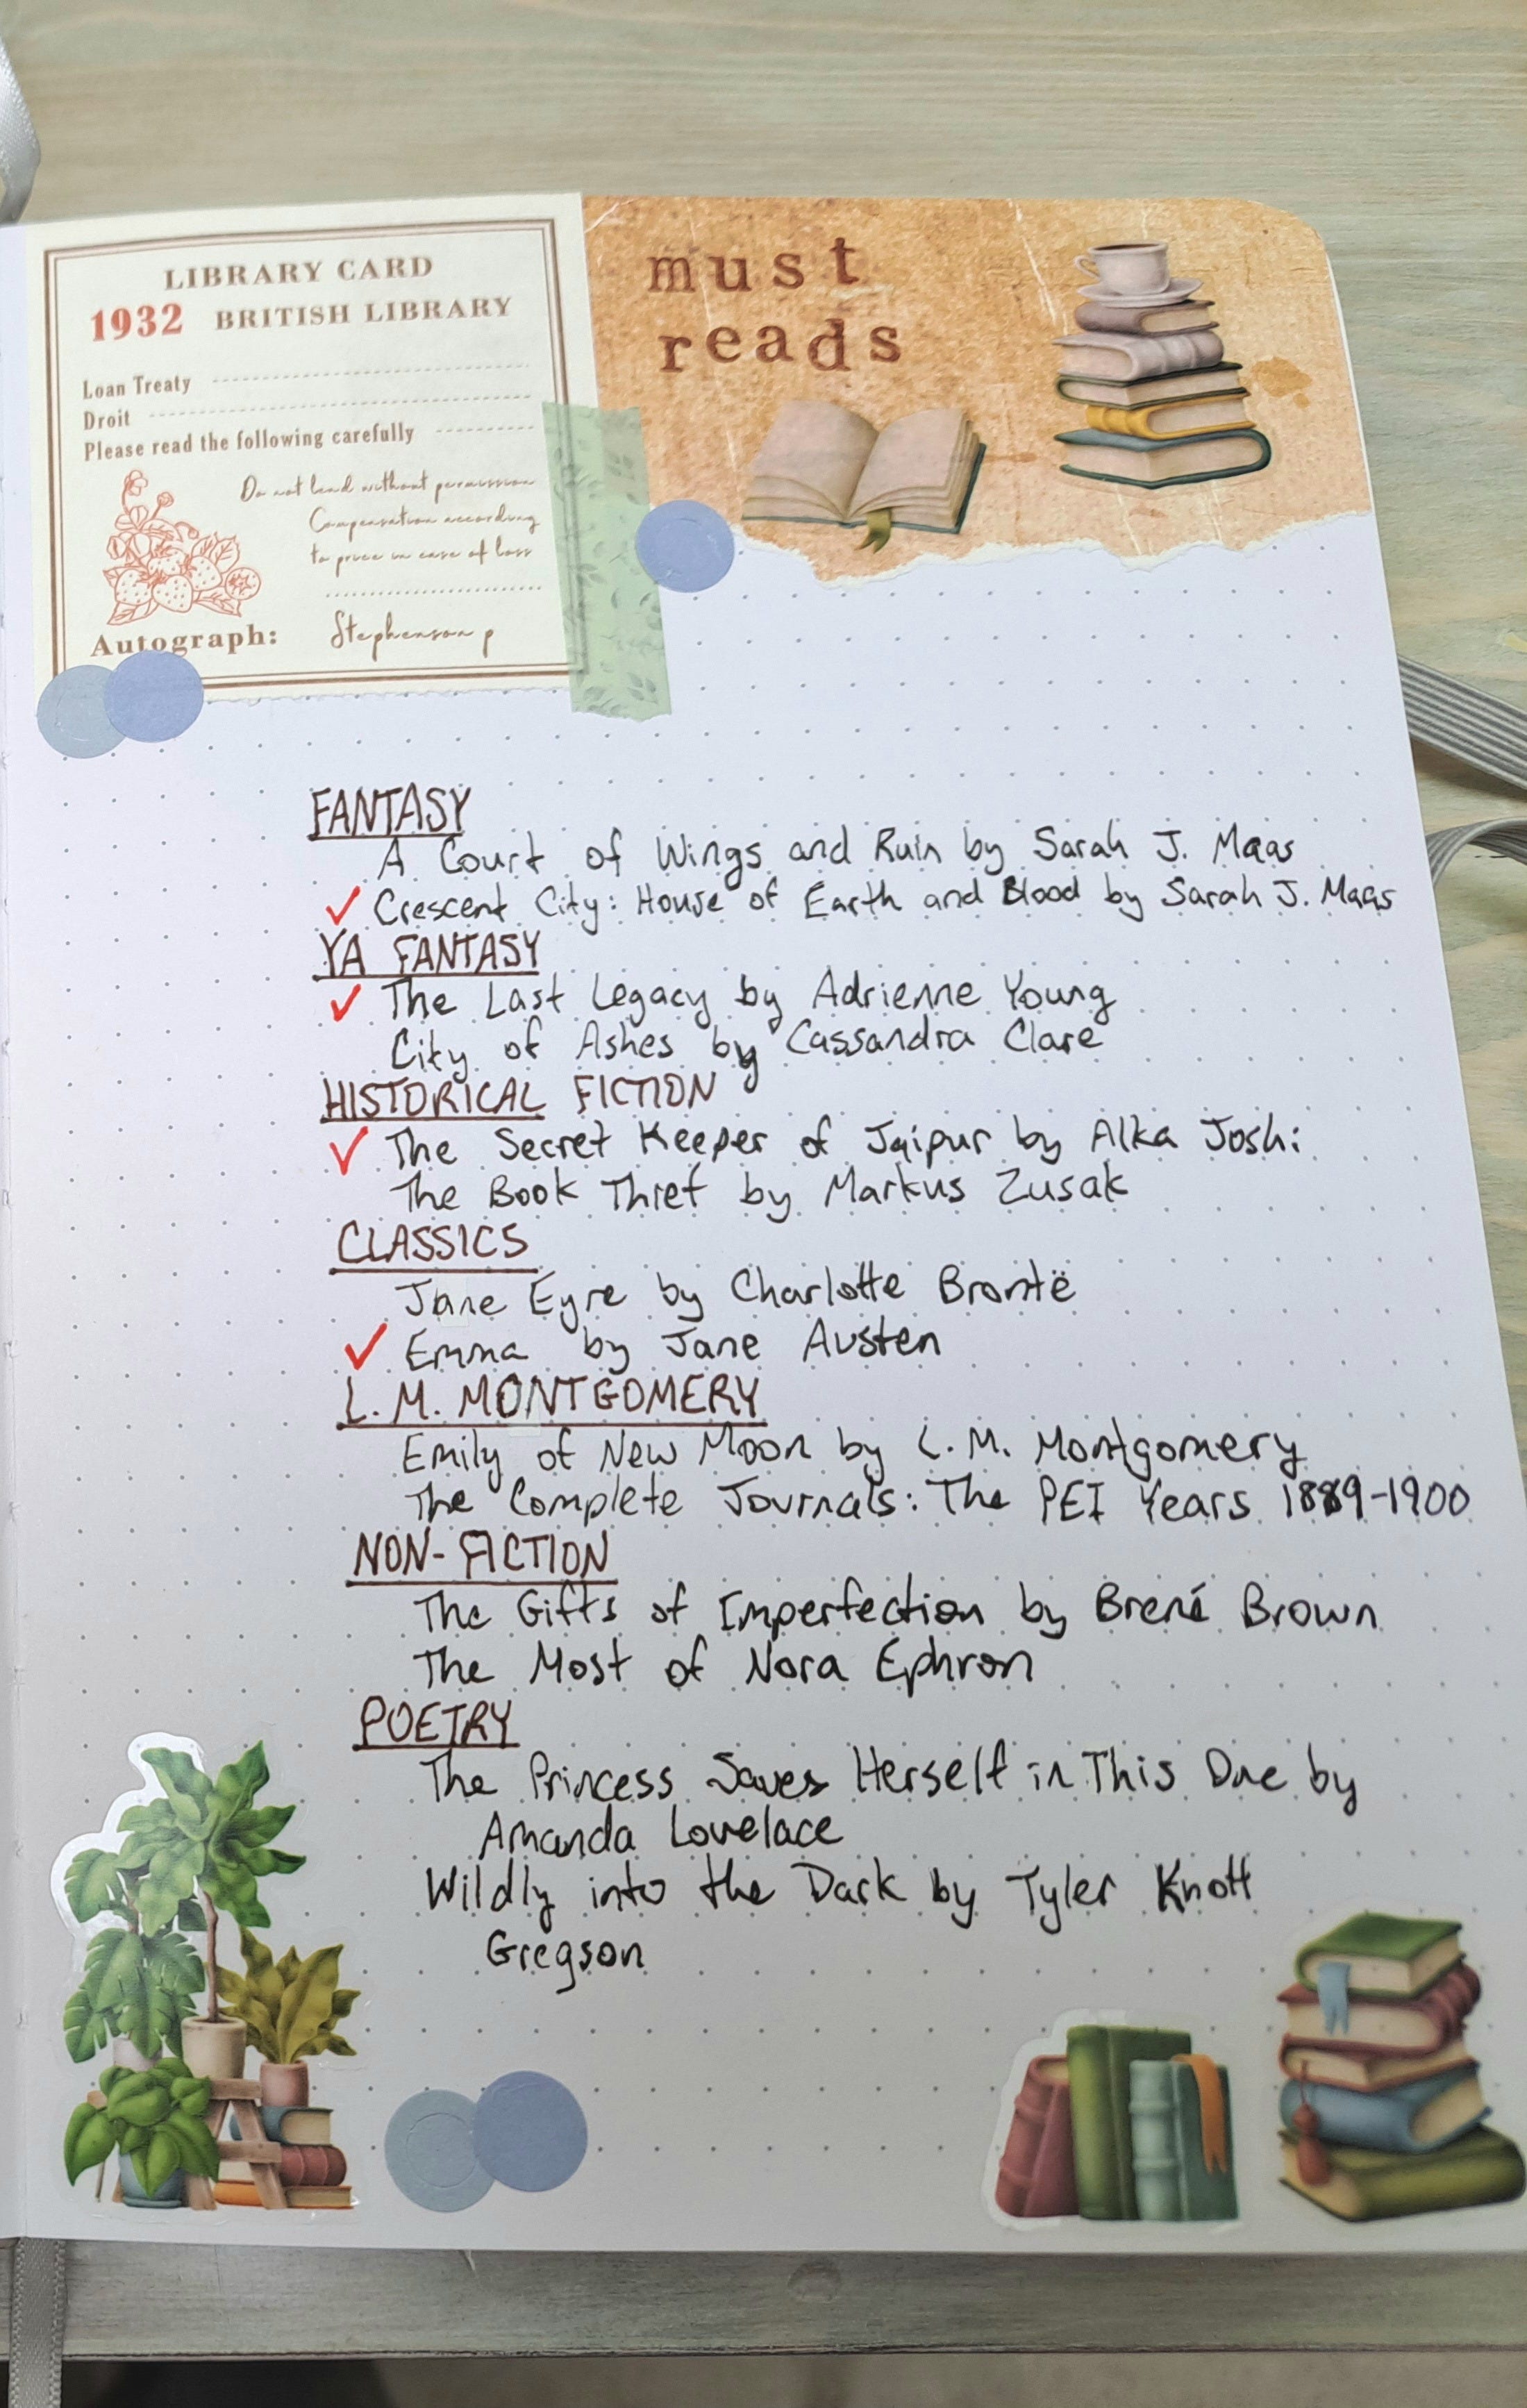 LIBRARY CARD
1932 BRITISH LIBRARY
Loan Treaty
Droit
Please read the following carefully
Do not lend without permission
Compensation according
to price in case of loss
Autograph: Stephenson p
must
reads
FANTASY
A Court of Wings and Ruin by Sarah J. Maas
✓ Crescent City: House of Earth and Blood by Sarah J. Maas
YA FANTASY
✓ The Last Legacy by Adrienne Young
City of Ashes by Cassandra Clare
HISTORICAL FICTION
✓ The Secret Keeper of Jaipur by Alka Joshi
The Book Thief by Markus Zusak
CLASSICS
Jane Eyre by Charlotte Brontë
✓ Emma by Jane Austen
L. M. MONTGOMERY
Emily of New Moon by L. M. Montgomery
The Complete Journals: The PEI Years 1889-1900
NON-FICTION
The Gifts of Imperfection by Brené Brown
The Most of Nora Ephron
POETRY
The Princess Saves Herself in This One by
Amanda Lovelace
Wildly into the Dark by Tyler Knott
Gregson